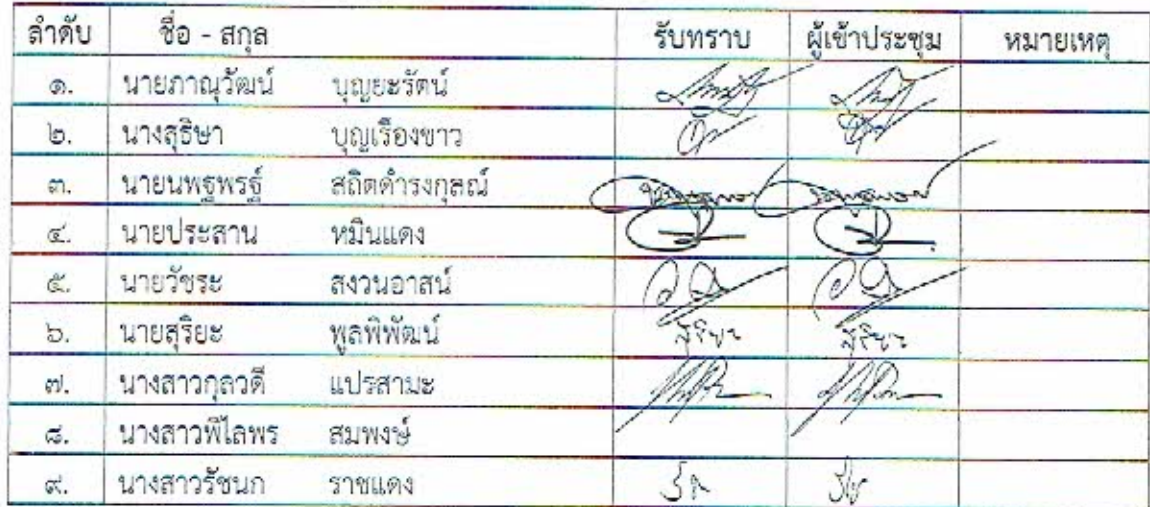 ลำดับ ชื่อ - สกุล รับทราบ ผู้เข้าประชุม หมายเหตุ
๑. นายภาณุวัฒน์ บุญยะรัตน์
๒. นางสุธิษา บุญเรืองขาว
๓. นายนพฐพรฐ์ สถิตดำรงกุลณ์
๔. นายประสาน หมินแดง
๕. นายวัชระ สงวนอาสน์
๖. นายสุริยะ พูลพิพัฒน์ สุริยะ สุริยะ
๗. นางสาวกุลวดี แปรสามะ
๘. นางสาวพิไลพร สมพงษ์
๙. นางสาวรัชนก ราชแดง